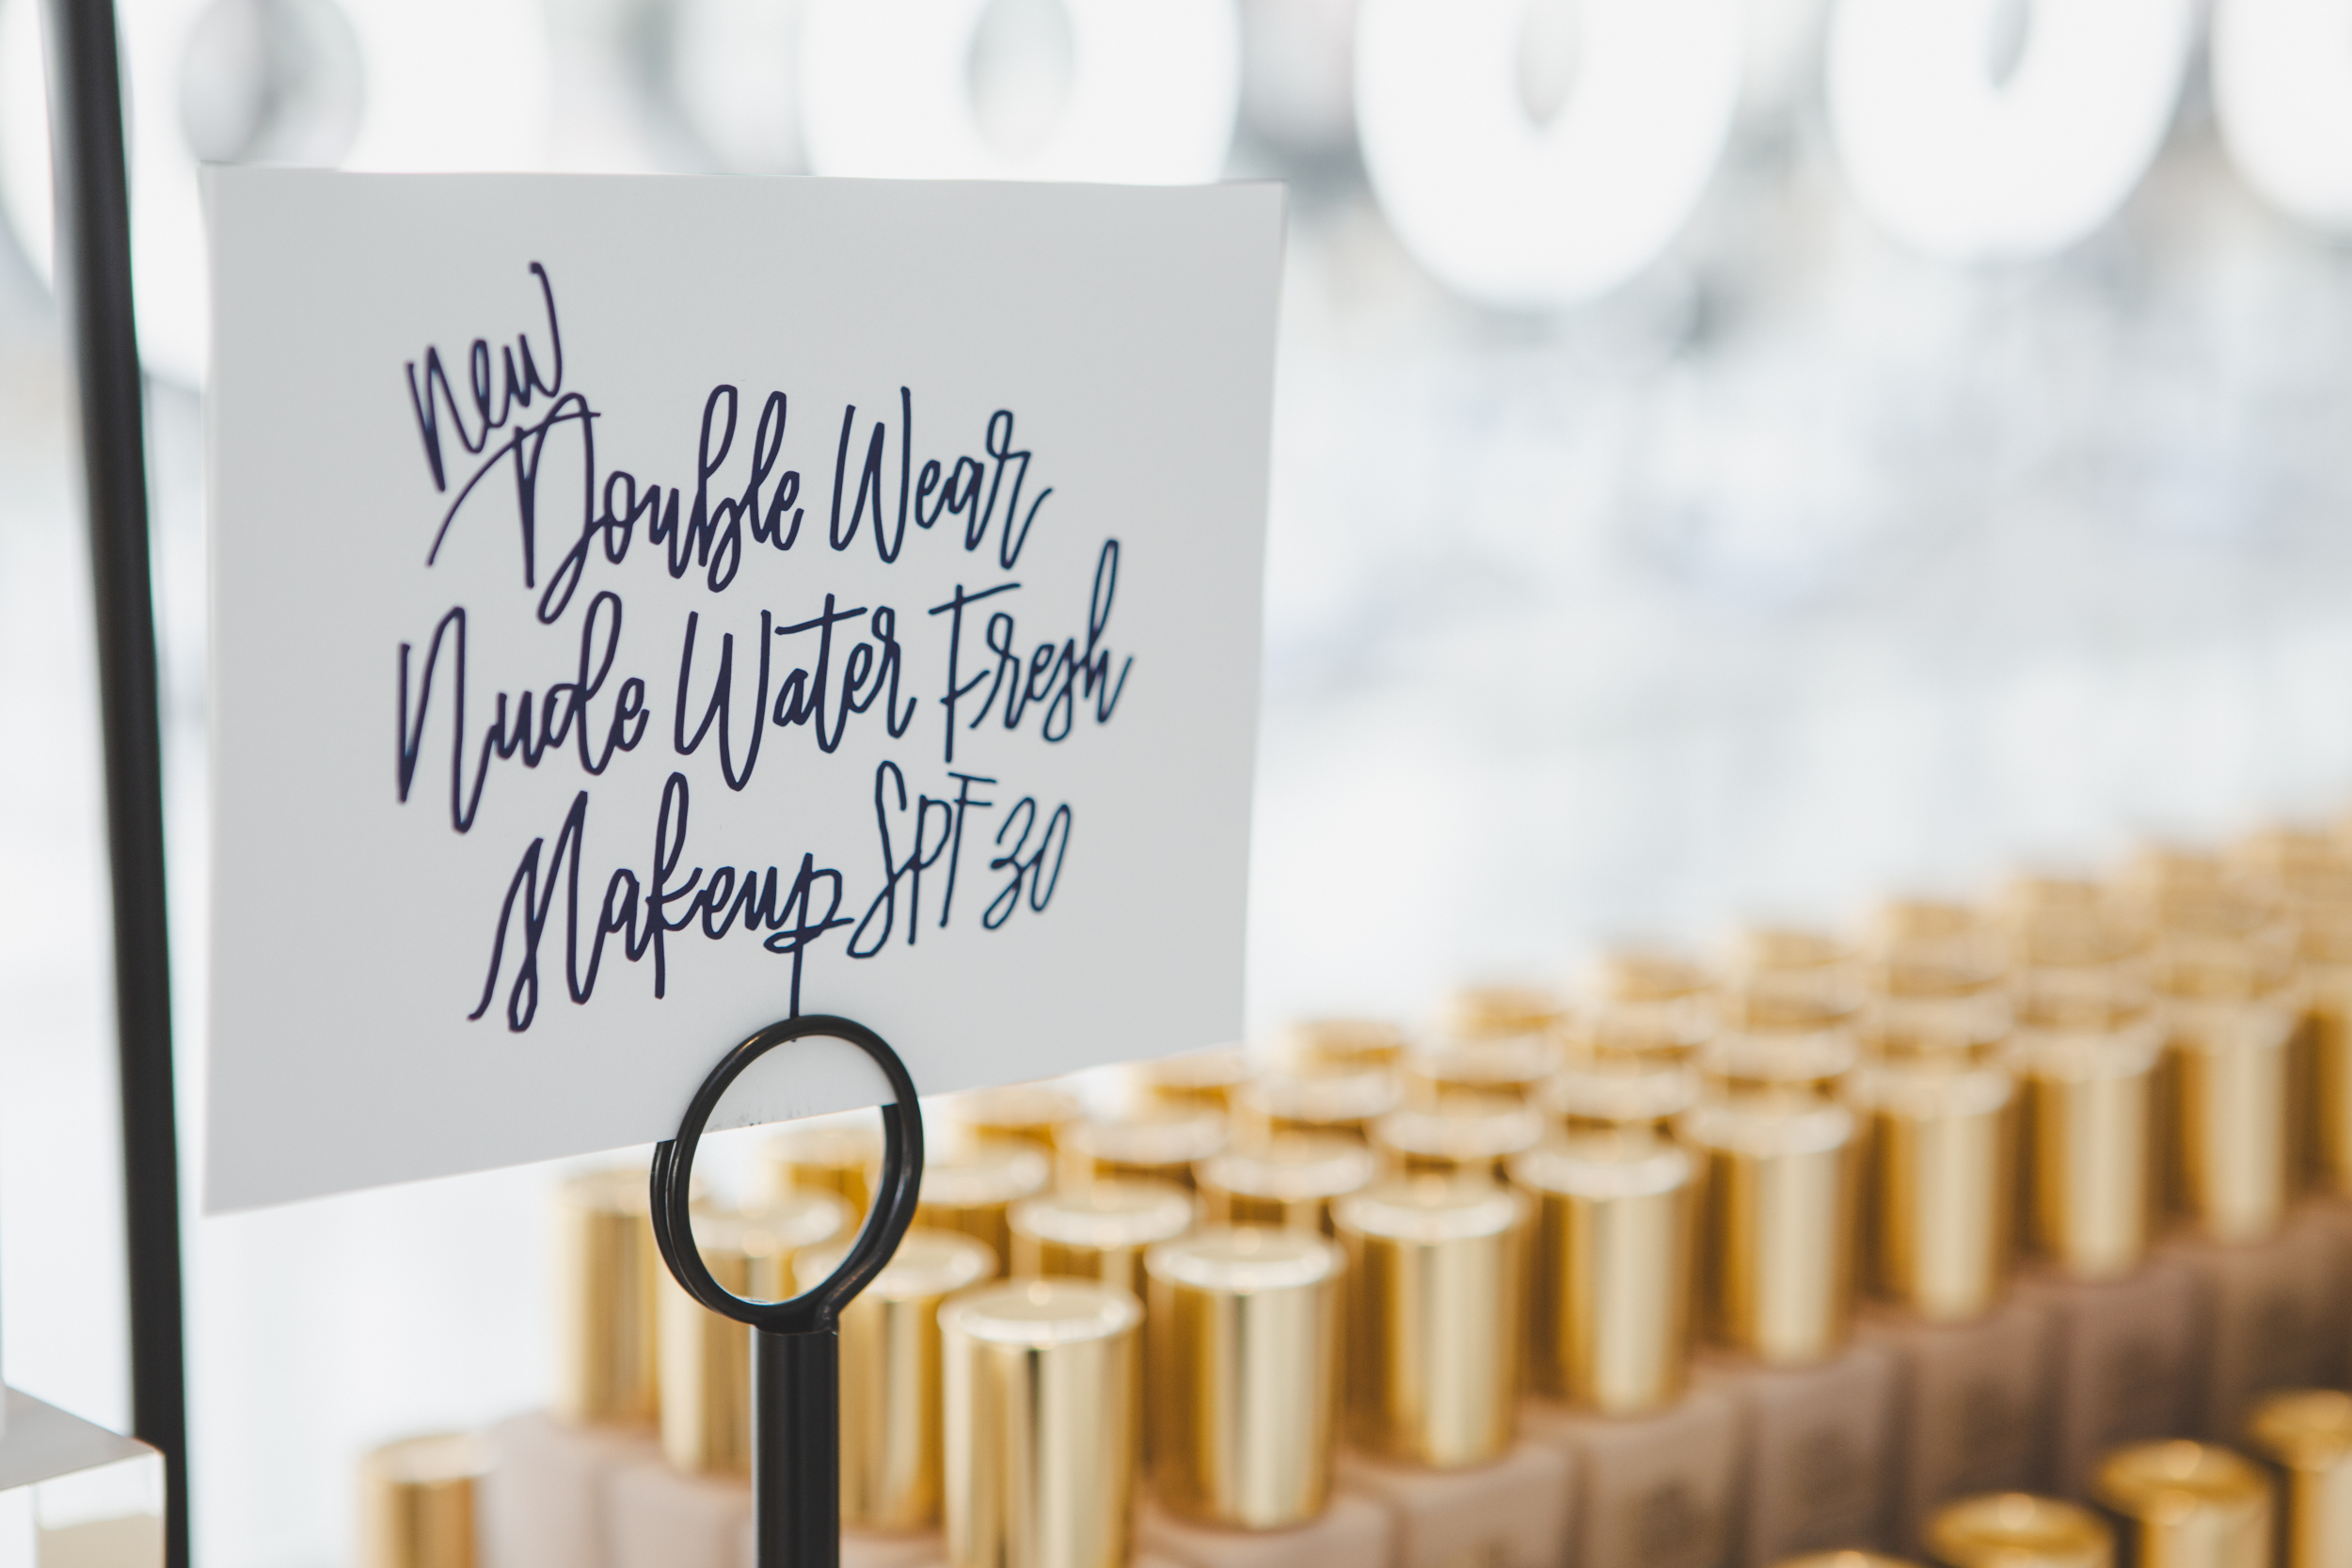 New
Double Wear
Nude Water Fresh
Makeup SPF 30